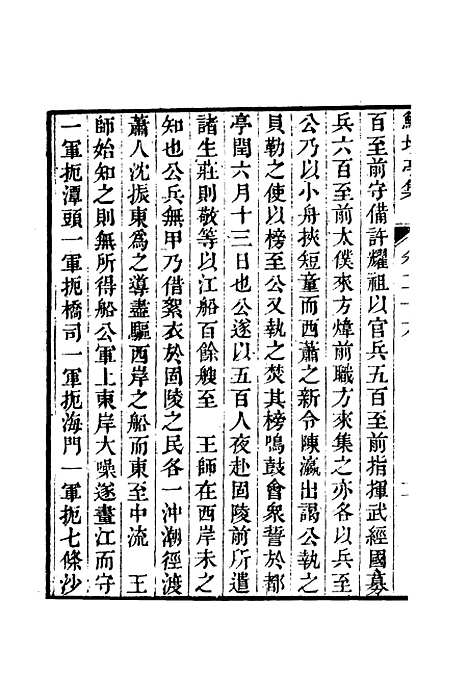 百至前守備許耀祖以官兵五百至前指揮武經國募
兵六百至前太僕來方煒前職方來集之亦各以兵至
公乃以小舟挾短童而西蕭之新令陳瀛出謁公執之
貝勒之使以榜至公又執之焚其榜鳴鼓會衆誓於都
亭閏六月十三日也公遂以五百人夜赴固陵前所遣
諸生莊則敬等以江船百餘艘至　王師在西岸未之
知也公兵無甲乃借絮衣於固陵之民各一沖潮徑渡
蕭人沈振東爲之導盡驅西岸之船而東至中流　王
師始知之則無所得船公軍上東岸大噪遂畫江而守
一軍扼潭頭一軍扼橋司一軍扼海門一軍扼七條沙